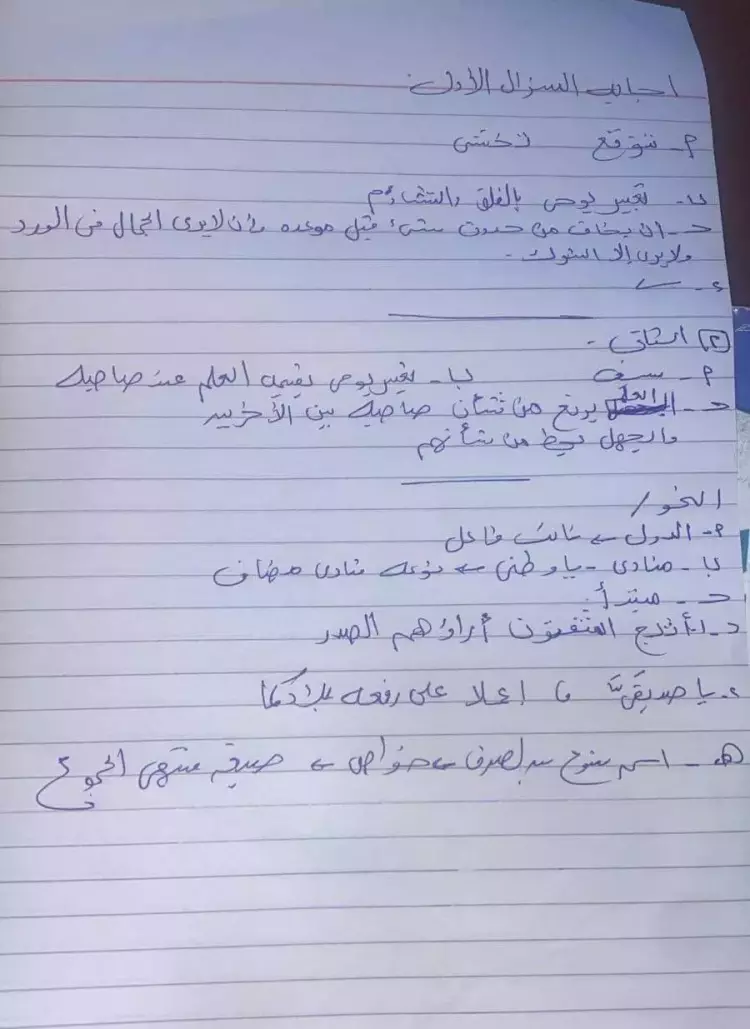 اجابات السؤال الأول:
م- نتوقع نخشى
ب- تعبير يوحى بالقلق والتشاؤم
ج- ان يخاف من حدوث شئ قبل موعده وان لا يرى الجمال فى الورد
ولا يرى إلا الشوك -
ء-
(٢) الثانى -
م- ب- تعبير يوحى بقيمة العلم عند صاحبه
ج- العلم يرفع من شأن صاحبه بين الأخرين
والجهل يحط من شأنهم
النحو /
م- الدول ← نائب فاعل
ب- منادى - يا وطنى ← نوعه منادى مضاف
ج- مبتدأ
د- ١- أثلج المثقفون أراؤهم الصدر
٢- يا صديقىَّ اعملا على رفعة بلادكما
هـ- اسم ممنوع من الصرف ← ← صيغة منتهى الجموع